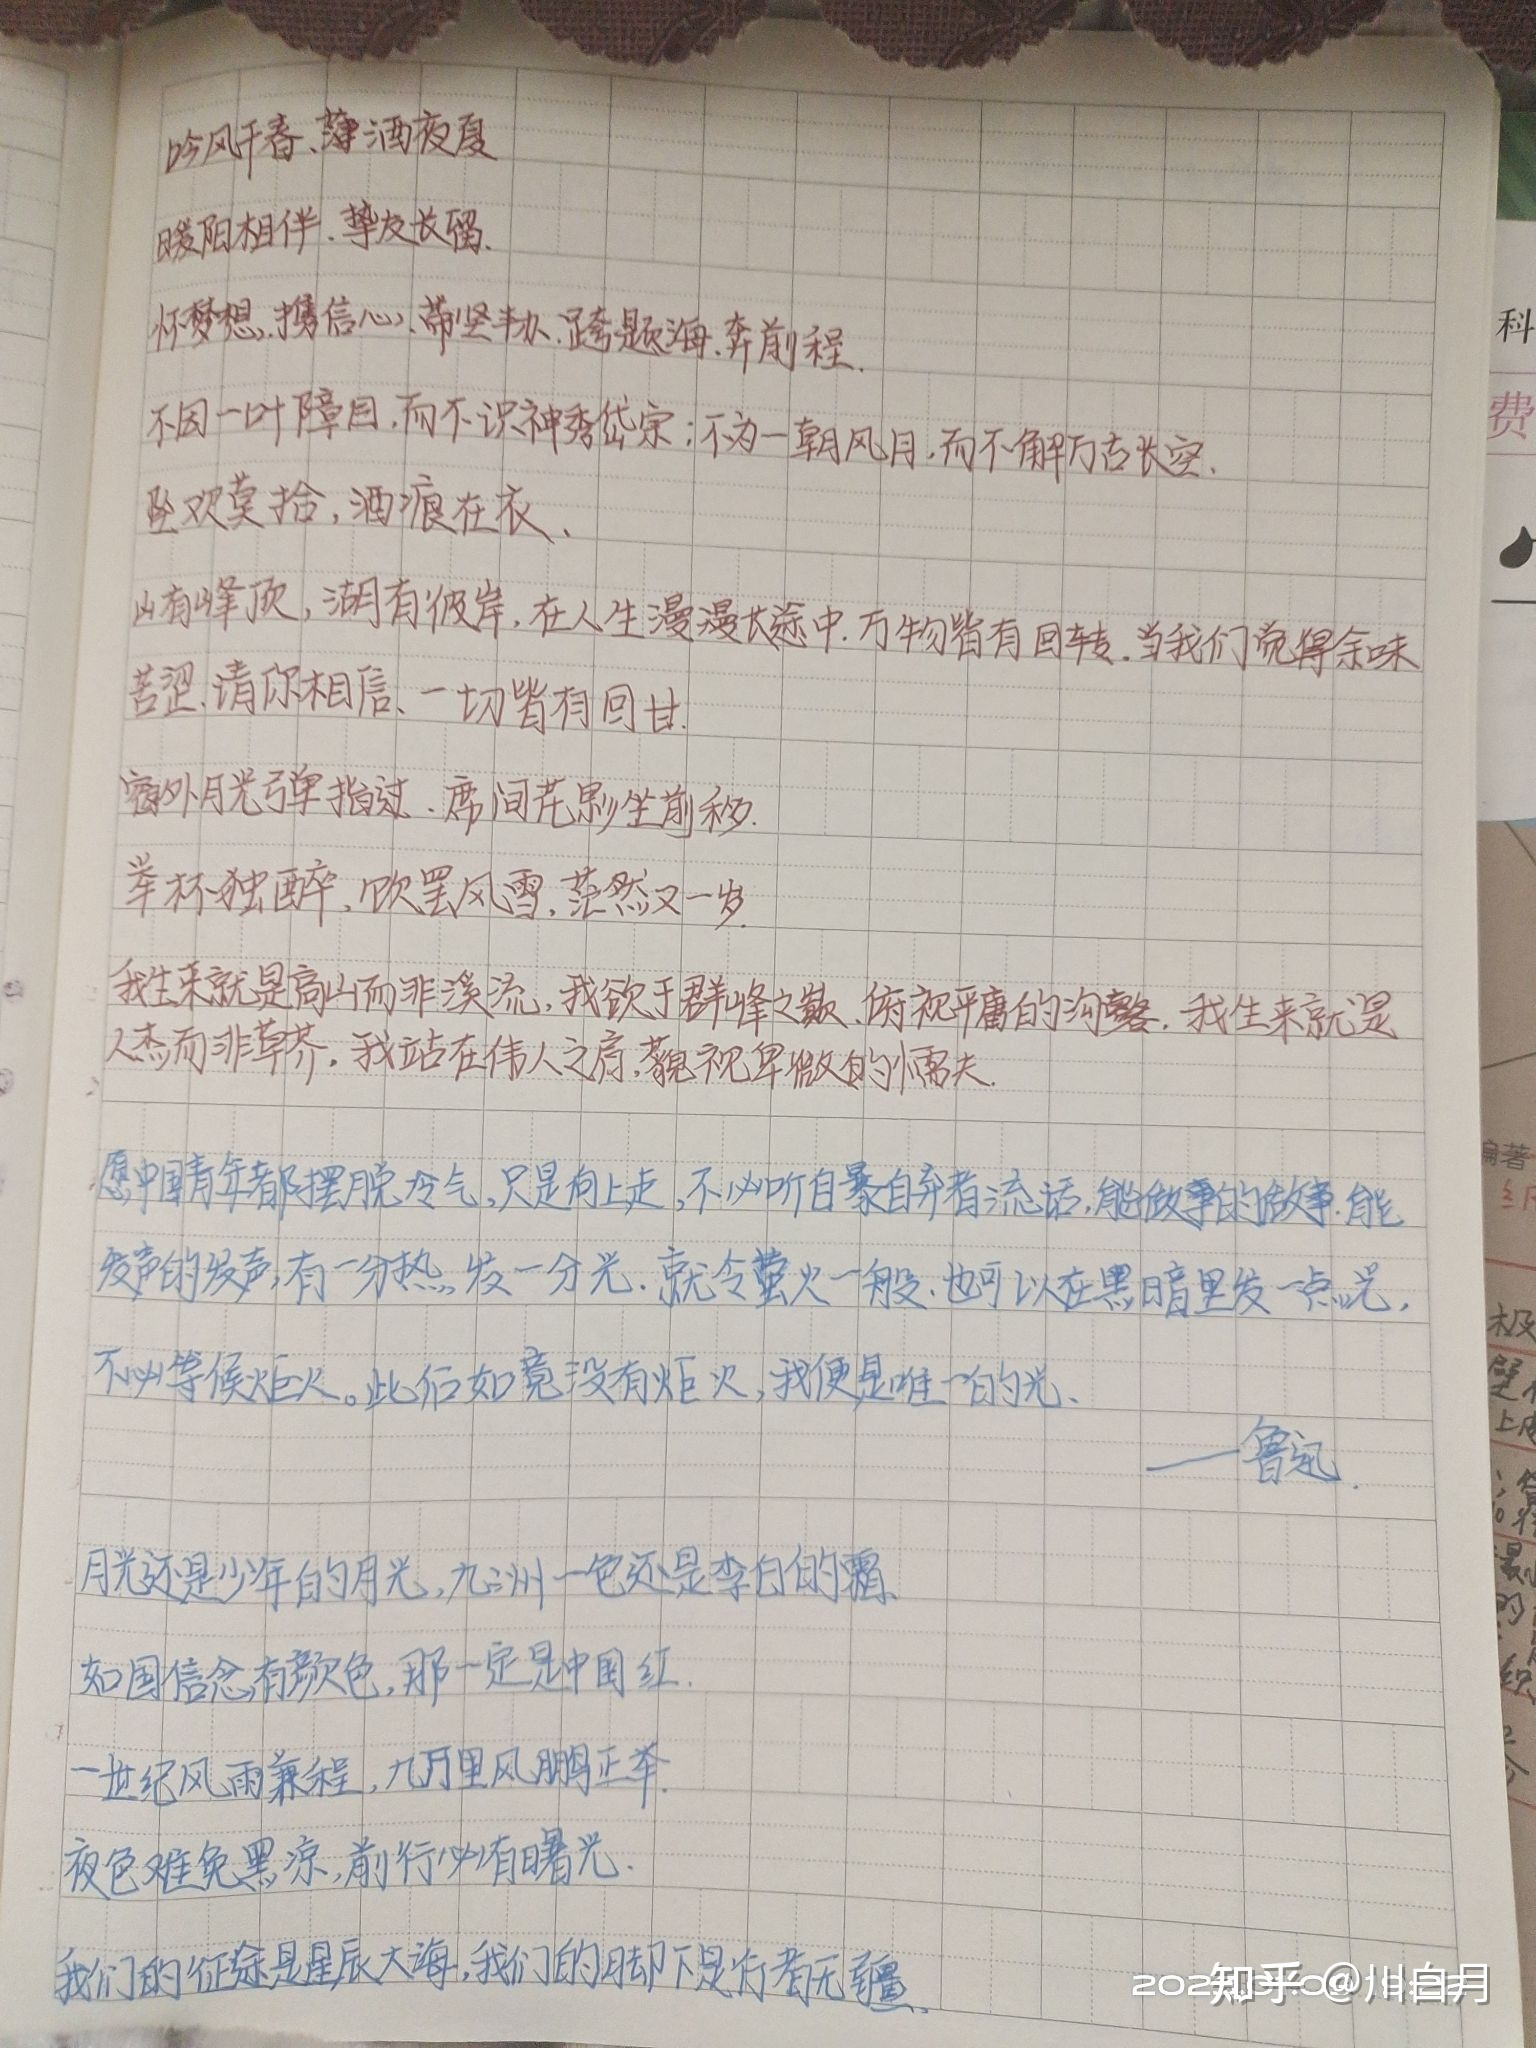 吟风千春、薄酒夜夏
暖阳相伴、挚友长留.
怀梦想,携信心、带坚毅、跨题海、奔前程.
不因一叶障目,而不识神秀岱宗;不为一朝风月,而不解万古长空.
坠欢莫拾,酒痕在衣、
山有峰顶,湖有彼岸,在人生漫漫长途中.万物皆有回转.当我们觉得余味
苦涩.请你相信、一切皆有回甘.
窗外月光弹指过.席间花影坐前移.
举杯独醉,饮罢风雪,茫然又一岁.
我生来就是高山而非溪流,我欲于群峰之巅、俯视平庸的沟壑.我生来就是
人杰而非草芥.我站在伟人之肩,藐视卑微的懦夫.
愿中国青年都摆脱冷气,只是向上走,不必听自暴自弃者流话,能做事的做事.能
发声的发声,有一分热,发一分光.就令萤火一般.也可以在黑暗里发一点光,
不必等候炬火。此后如竟没有炬火,我便是唯一的光、
——鲁迅.
月光还是少年的月光,九洲一色还是李白的霜、
如国信念有颜色,那一定是中国红.
一世纪风雨兼程,九万里风鹏正举.
夜色难免黑凉,前行必有曙光.
我们的征途是星辰大海,我们的脚下是行者无疆.
知乎 @川白月
科
费
编著